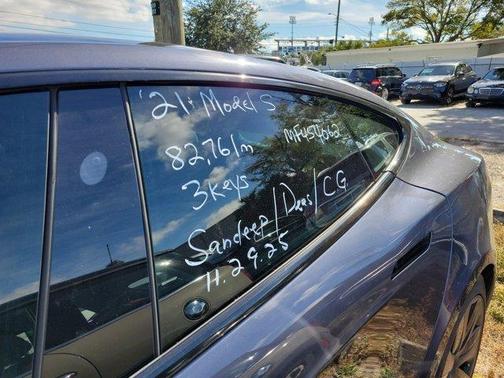 '21. Model S
82,761m
MF454062
3 keys
Sandeep/Dees/C.G.
11.29.25